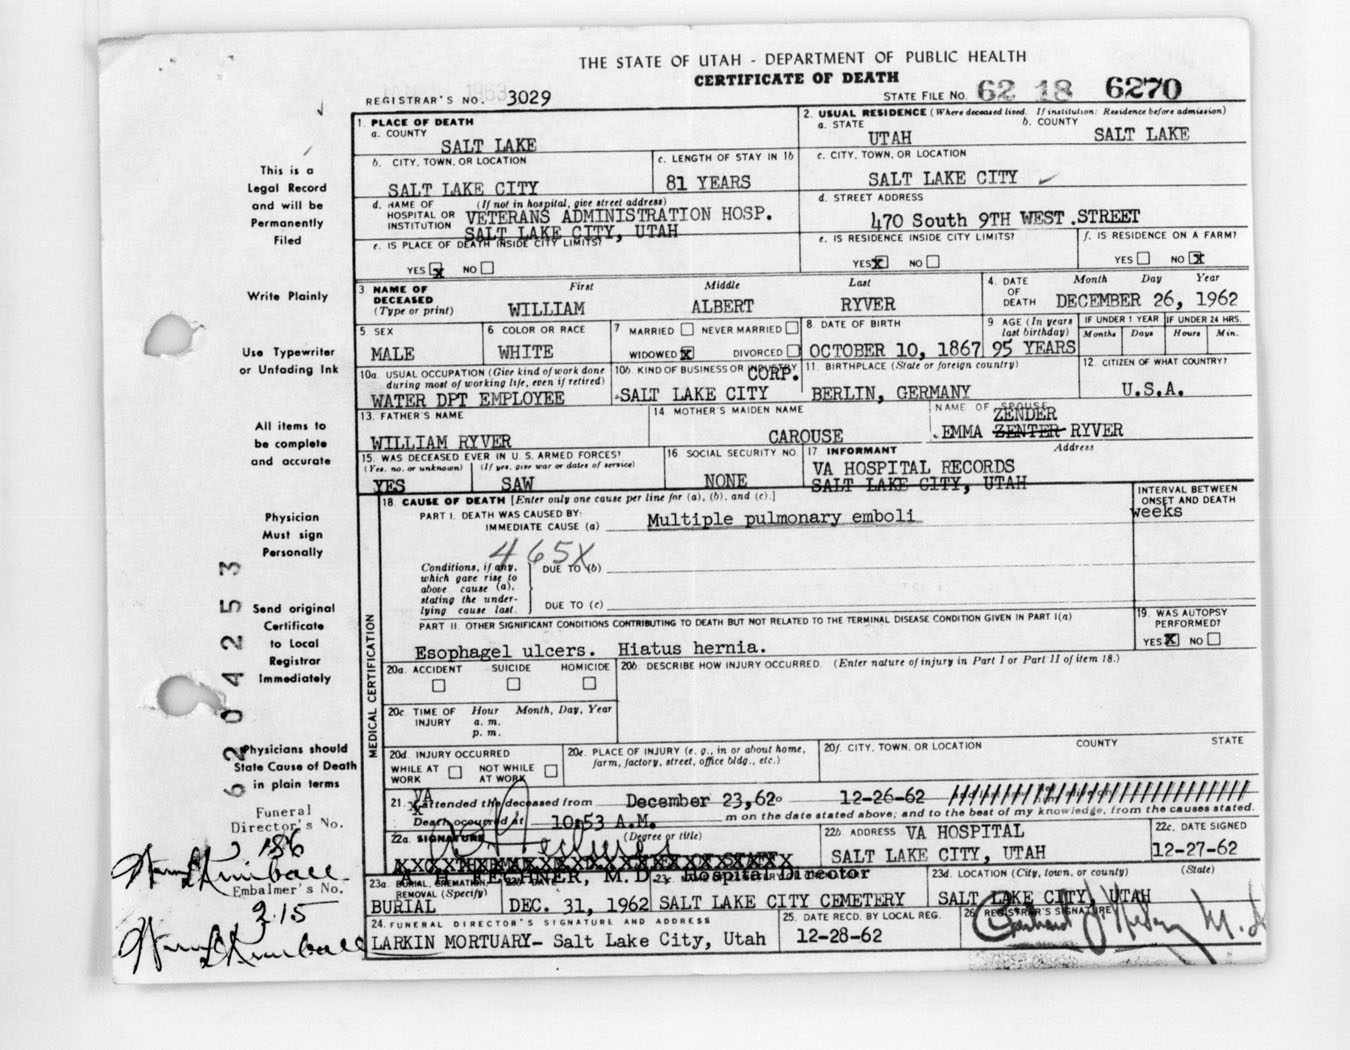 THE STATE OF UTAH - DEPARTMENT OF PUBLIC HEALTH
CERTIFICATE OF DEATH
REGISTRAR'S NO. 3029
STATE FILE NO. 62 18 6270
1. PLACE OF DEATH
a. COUNTY
SALT LAKE
2. USUAL RESIDENCE (Where deceased lived. If institution: Residence before admission)
a. STATE
UTAH
b. COUNTY
SALT LAKE
b. CITY, TOWN, OR LOCATION
SALT LAKE CITY
c. LENGTH OF STAY IN 1b
81 YEARS
c. CITY, TOWN, OR LOCATION
SALT LAKE CITY
d. NAME OF HOSPITAL OR INSTITUTION (If not in hospital, give street address)
VETERANS ADMINISTRATION HOSP.
SALT LAKE CITY, UTAH
d. STREET ADDRESS
470 South 9TH WEST.STREET
e. IS PLACE OF DEATH INSIDE CITY LIMITS?
YES X NO
e. IS RESIDENCE INSIDE CITY LIMITS?
YES X NO
f. IS RESIDENCE ON A FARM?
YES NO X
3 NAME OF DECEASED (Type or print)
First Middle Last
WILLIAM ALBERT RYVER
4. DATE OF DEATH
Month Day Year
DECEMBER 26, 1962
5 SEX
MALE
6 COLOR OR RACE
WHITE
7 MARRIED NEVER MARRIED
WIDOWED X DIVORCED
8. DATE OF BIRTH
OCTOBER 10, 1867
9 AGE (In years last birthday)
95 YEARS
IF UNDER 1 YEAR
Months Days
IF UNDER 24 HRS.
Hours Min.
10a. USUAL OCCUPATION (Give kind of work done during most of working life, even if retired)
WATER DPT EMPLOYEE
10b. KIND OF BUSINESS OR INDUSTRY
CORP.
SALT LAKE CITY
11. BIRTHPLACE (State or foreign country)
BERLIN, GERMANY
12. CITIZEN OF WHAT COUNTRY?
U.S.A.
13. FATHER'S NAME
WILLIAM RYVER
14 MOTHER'S MAIDEN NAME
CAROUSE
NAME OF SPOUSE
ZENDER
EMMA ZENTER RYVER
15. WAS DECEASED EVER IN U. S. ARMED FORCES?
(Yes, no. or unknown) (If yes, give war or dates of service)
YES SAW
16. SOCIAL SECURITY NO.
NONE
17 INFORMANT Address
VA HOSPITAL RECORDS
SALT LAKE CITY, UTAH
18. CAUSE OF DEATH [Enter only one cause per line for (a), (b), and (c).]
INTERVAL BETWEEN ONSET AND DEATH
PART I. DEATH WAS CAUSED BY:
IMMEDIATE CAUSE (a) Multiple pulmonary emboli
weeks
465X
Conditions, if any, which gave rise to above cause (a), stating the underlying cause last.
DUE TO (b)
DUE TO (c)
PART II. OTHER SIGNIFICANT CONDITIONS CONTRIBUTING TO DEATH BUT NOT RELATED TO THE TERMINAL DISEASE CONDITION GIVEN IN PART I(a)
Esophagel ulcers. Hiatus hernia.
19. WAS AUTOPSY PERFORMED?
YES X NO
MEDICAL CERTIFICATION
20a. ACCIDENT SUICIDE HOMICIDE
20b. DESCRIBE HOW INJURY OCCURRED. (Enter nature of injury in Part I or Part II of item 18.)
20c. TIME OF INJURY
Hour Month, Day, Year
a. m.
p. m.
20d INJURY OCCURRED
WHILE AT WORK NOT WHILE AT WORK
20e. PLACE OF INJURY (e. g., in or about home, farm, factory, street, office bldg., etc.)
20f. CITY, TOWN, OR LOCATION COUNTY STATE
21. VA attended the deceased from December 23,62 to 12-26-62
Death occurred at 10:53 A.M. m on the date stated above; and to the best of my knowledge, from the causes stated.
22a. SIGNATURE (Degree or title)
A H FECHNER, M.D. Hospital Director
22b. ADDRESS VA HOSPITAL
SALT LAKE CITY, UTAH
22c. DATE SIGNED
12-27-62
23a. BURIAL, CREMATION, REMOVAL (Specify)
BURIAL
23b. DATE
DEC. 31, 1962
SALT LAKE CITY CEMETERY
23d. LOCATION (City, town, or county) (State)
SALT LAKE CITY, UTAH
24. FUNERAL DIRECTOR'S SIGNATURE AND ADDRESS
LARKIN MORTUARY- Salt Lake City, Utah
25. DATE RECD. BY LOCAL REG.
12-28-62
26 REGISTRAR'S SIGNATURE
This is a
Legal Record
and will be
Permanently
Filed
Write Plainly
Use Typewriter
or Unfading Ink
All items to
be complete
and accurate
Physician
Must sign
Personally
Send original
Certificate
to Local
Registrar
Immediately
Physicians should
State Cause of Death
in plain terms
Funeral
Director's No.
186
Embalmer's No.
215
6204253